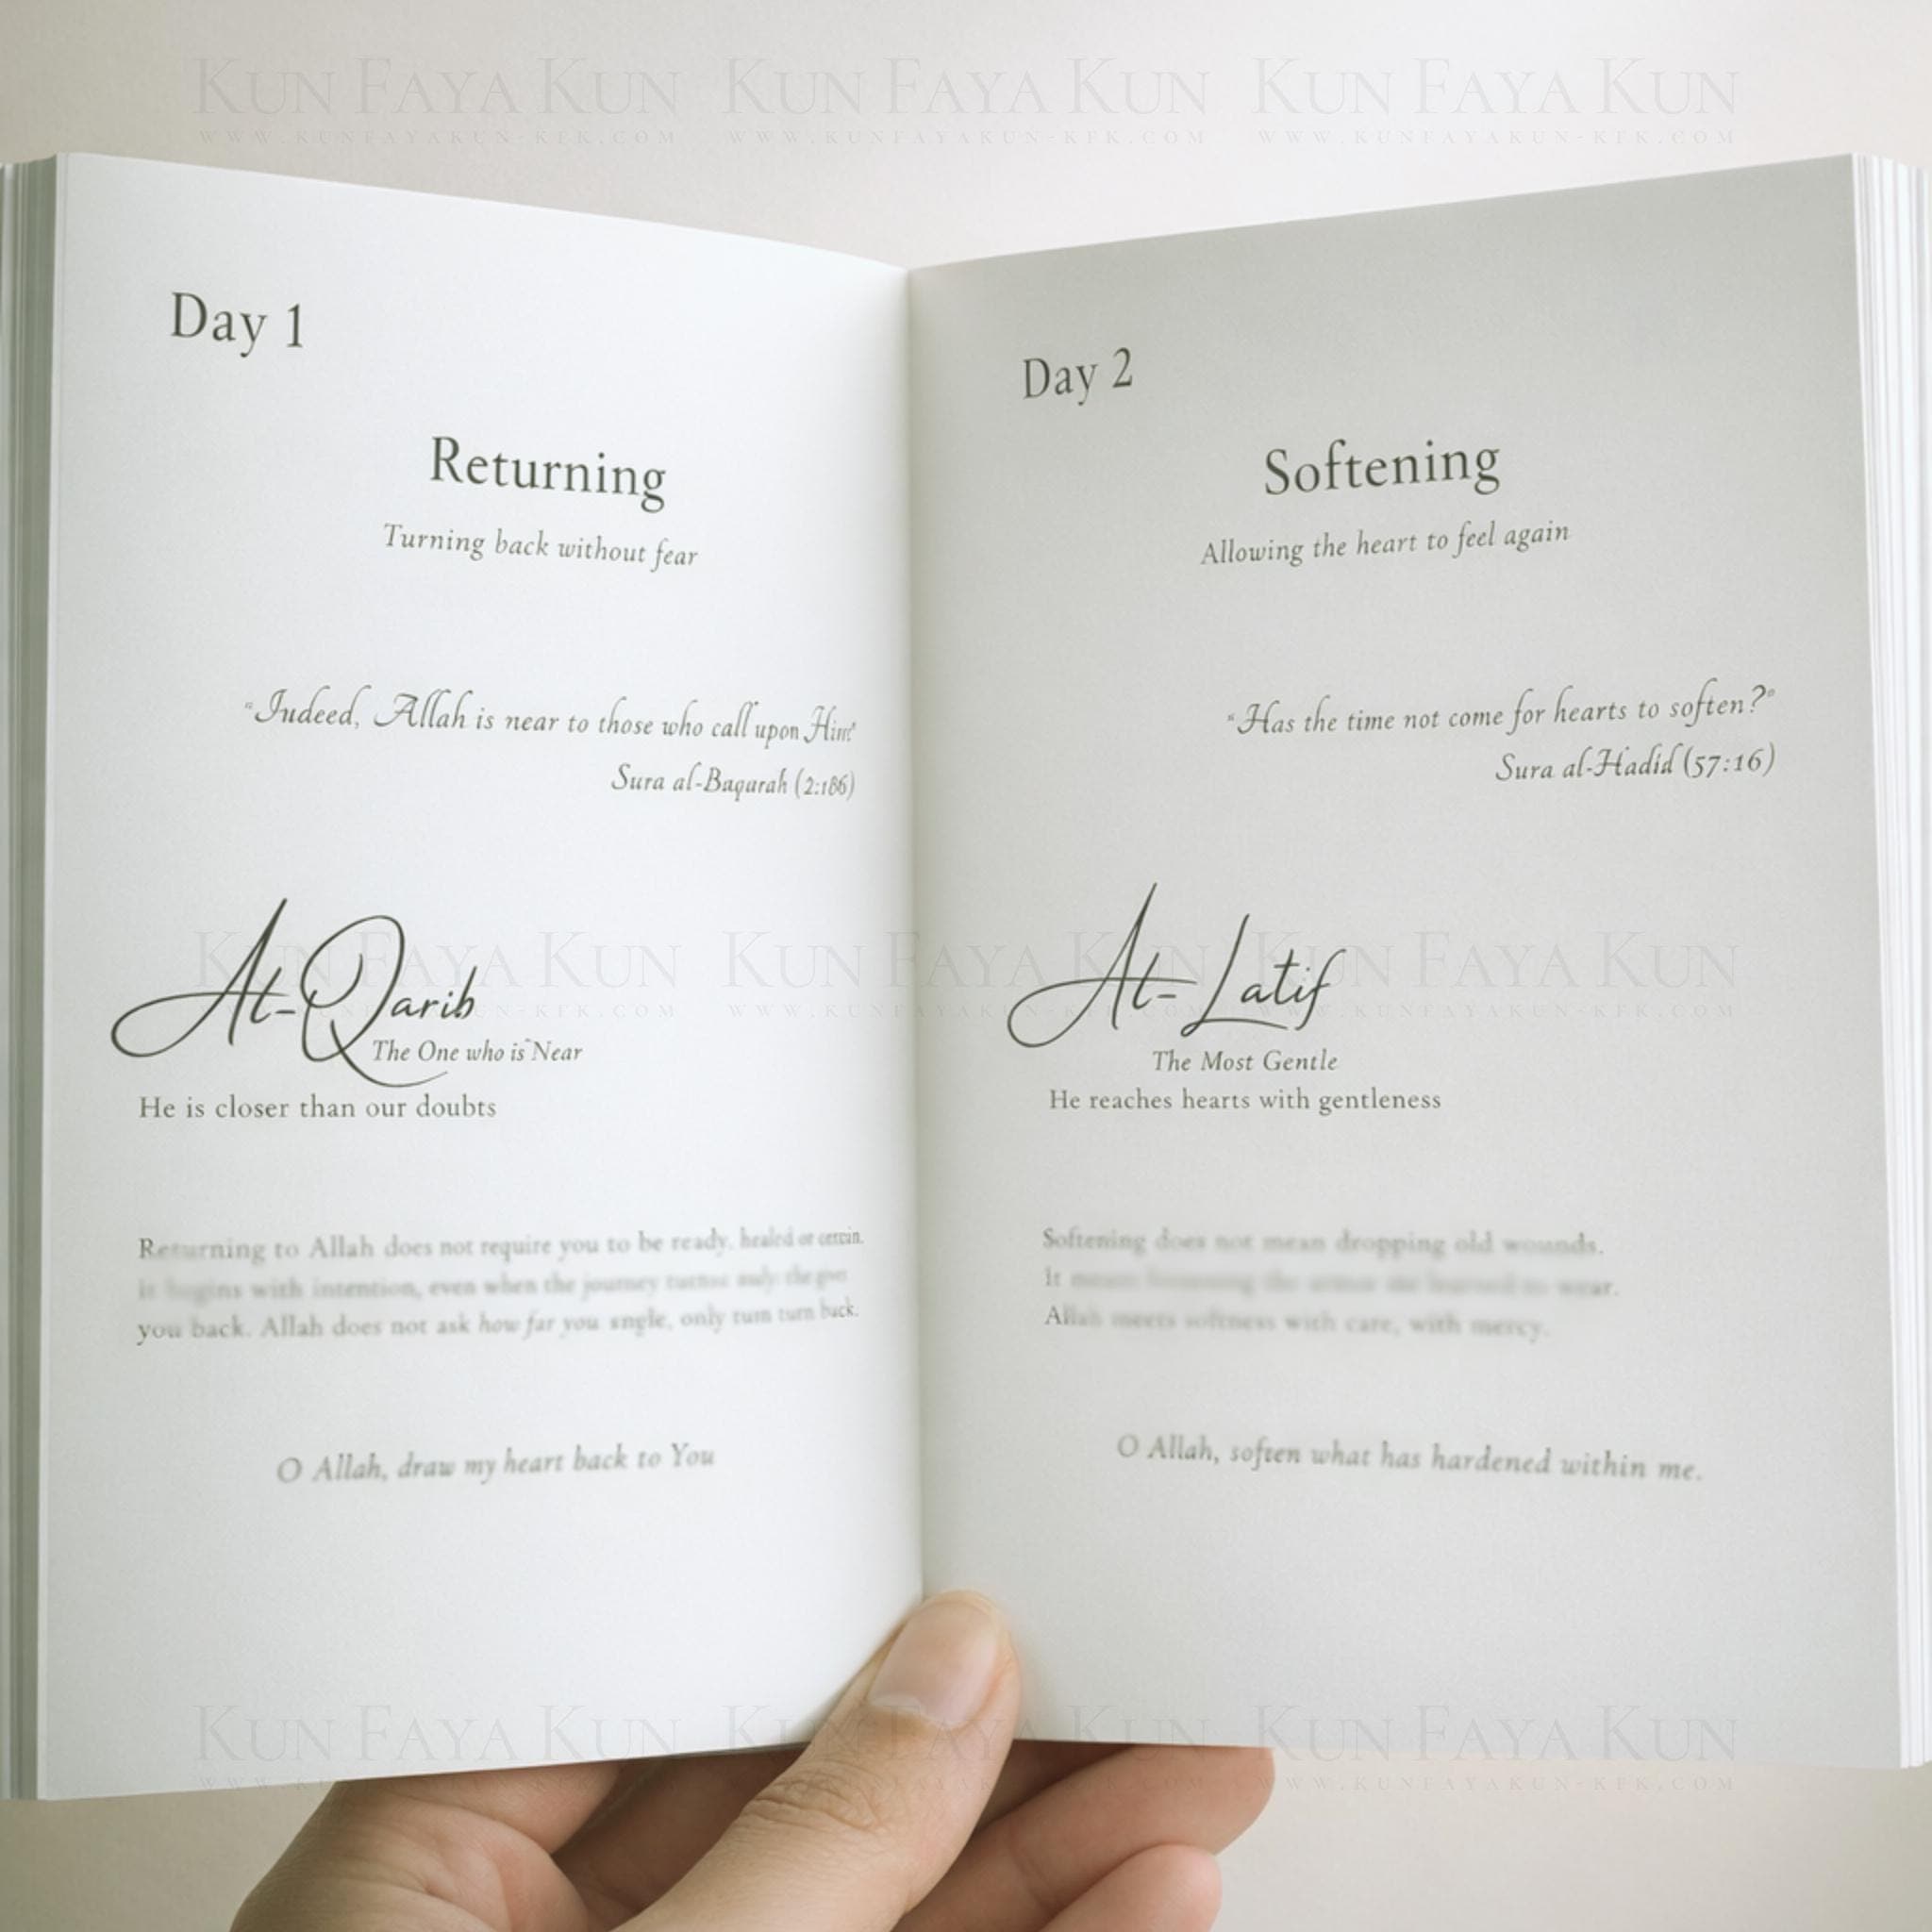 KUN FAYA KUN KUN FAYA KUN KUN FAYA KUN
WWW.KUNFAYAKUN-KFK.COM WWW.KUNFAYAKUN-KFK.COM WWW.KUNFAYAKUN-KFK.COM
Day 1
Returning
Turning back without fear
"Indeed, Allah is near to those who call upon Him"
Sura al-Baqarah (2:186)
Al-Qarib
The One who is Near
He is closer than our doubts
Returning to Allah does not require you to be ready, healed or certain.
with intention, even when the journey
you back. Allah does not ask how far you only turn turn back.
O Allah, draw my heart back to You
Day 2
Softening
Allowing the heart to feel again
"Has the time not come for hearts to soften?"
Sura al-Hadid (57:16)
Al-Latif
The Most Gentle
He reaches hearts with gentleness
Softening does not mean dropping old wounds.
It wear.
Allah meets softness with care, with mercy.
O Allah, soften what has hardened within me.
KUN FAYA KUN KUN FAYA KUN KUN FAYA KUN
KUN FAYA KUN KUN FAYA KUN
WWW.KUNFAYAKUN-KFK.COM